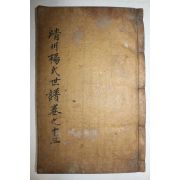 晴川楊氏世譜卷之十三